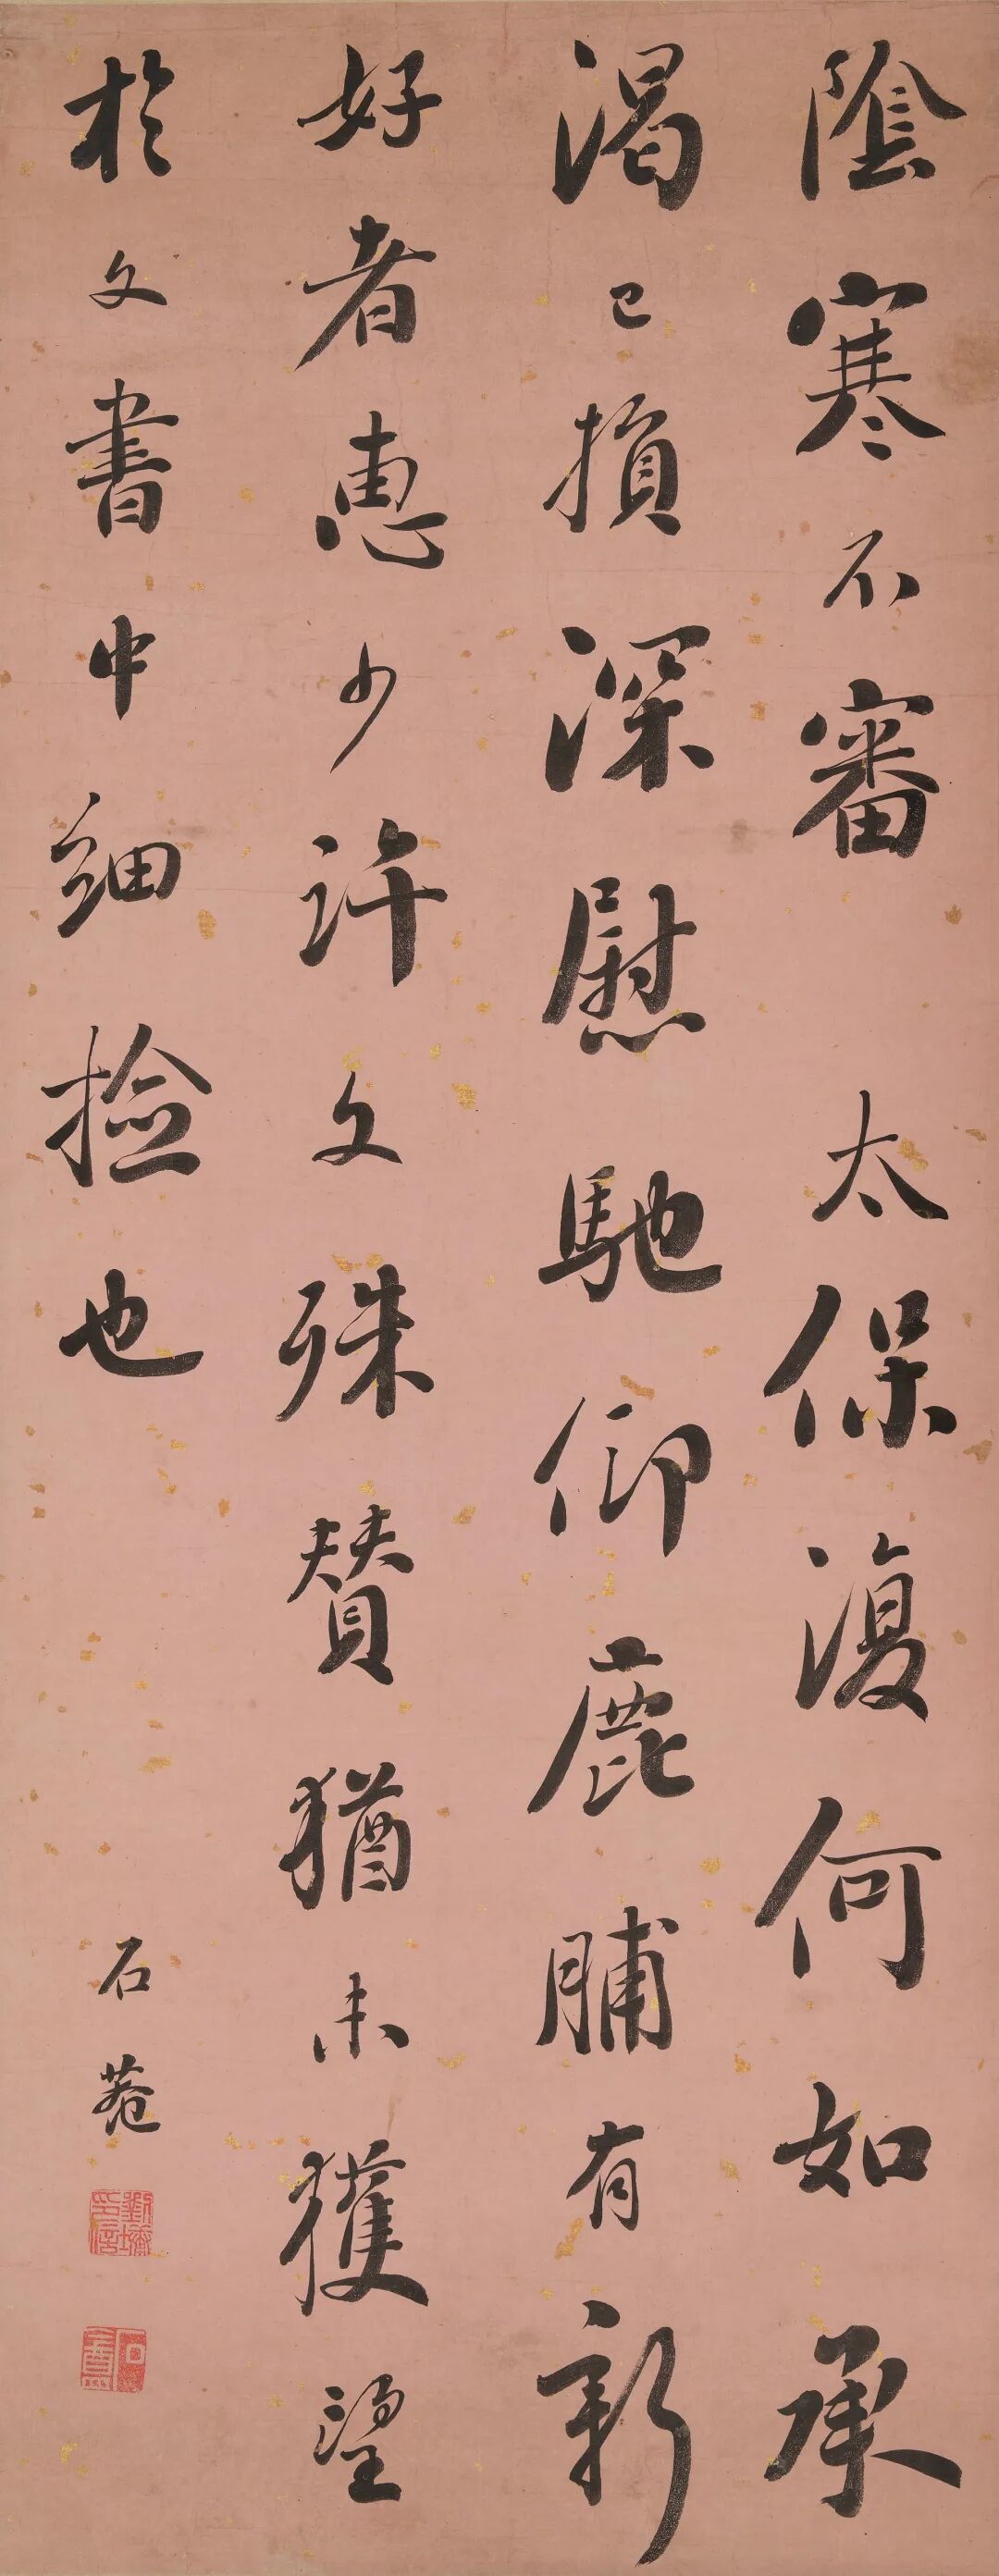 陰寒不審 太保湏何如承
渴已損深慰馳仰鹿脯有新
好者惠少許文殊賛猶未獲望
於文書中細撿也
石菴
劉墉印信
石菴